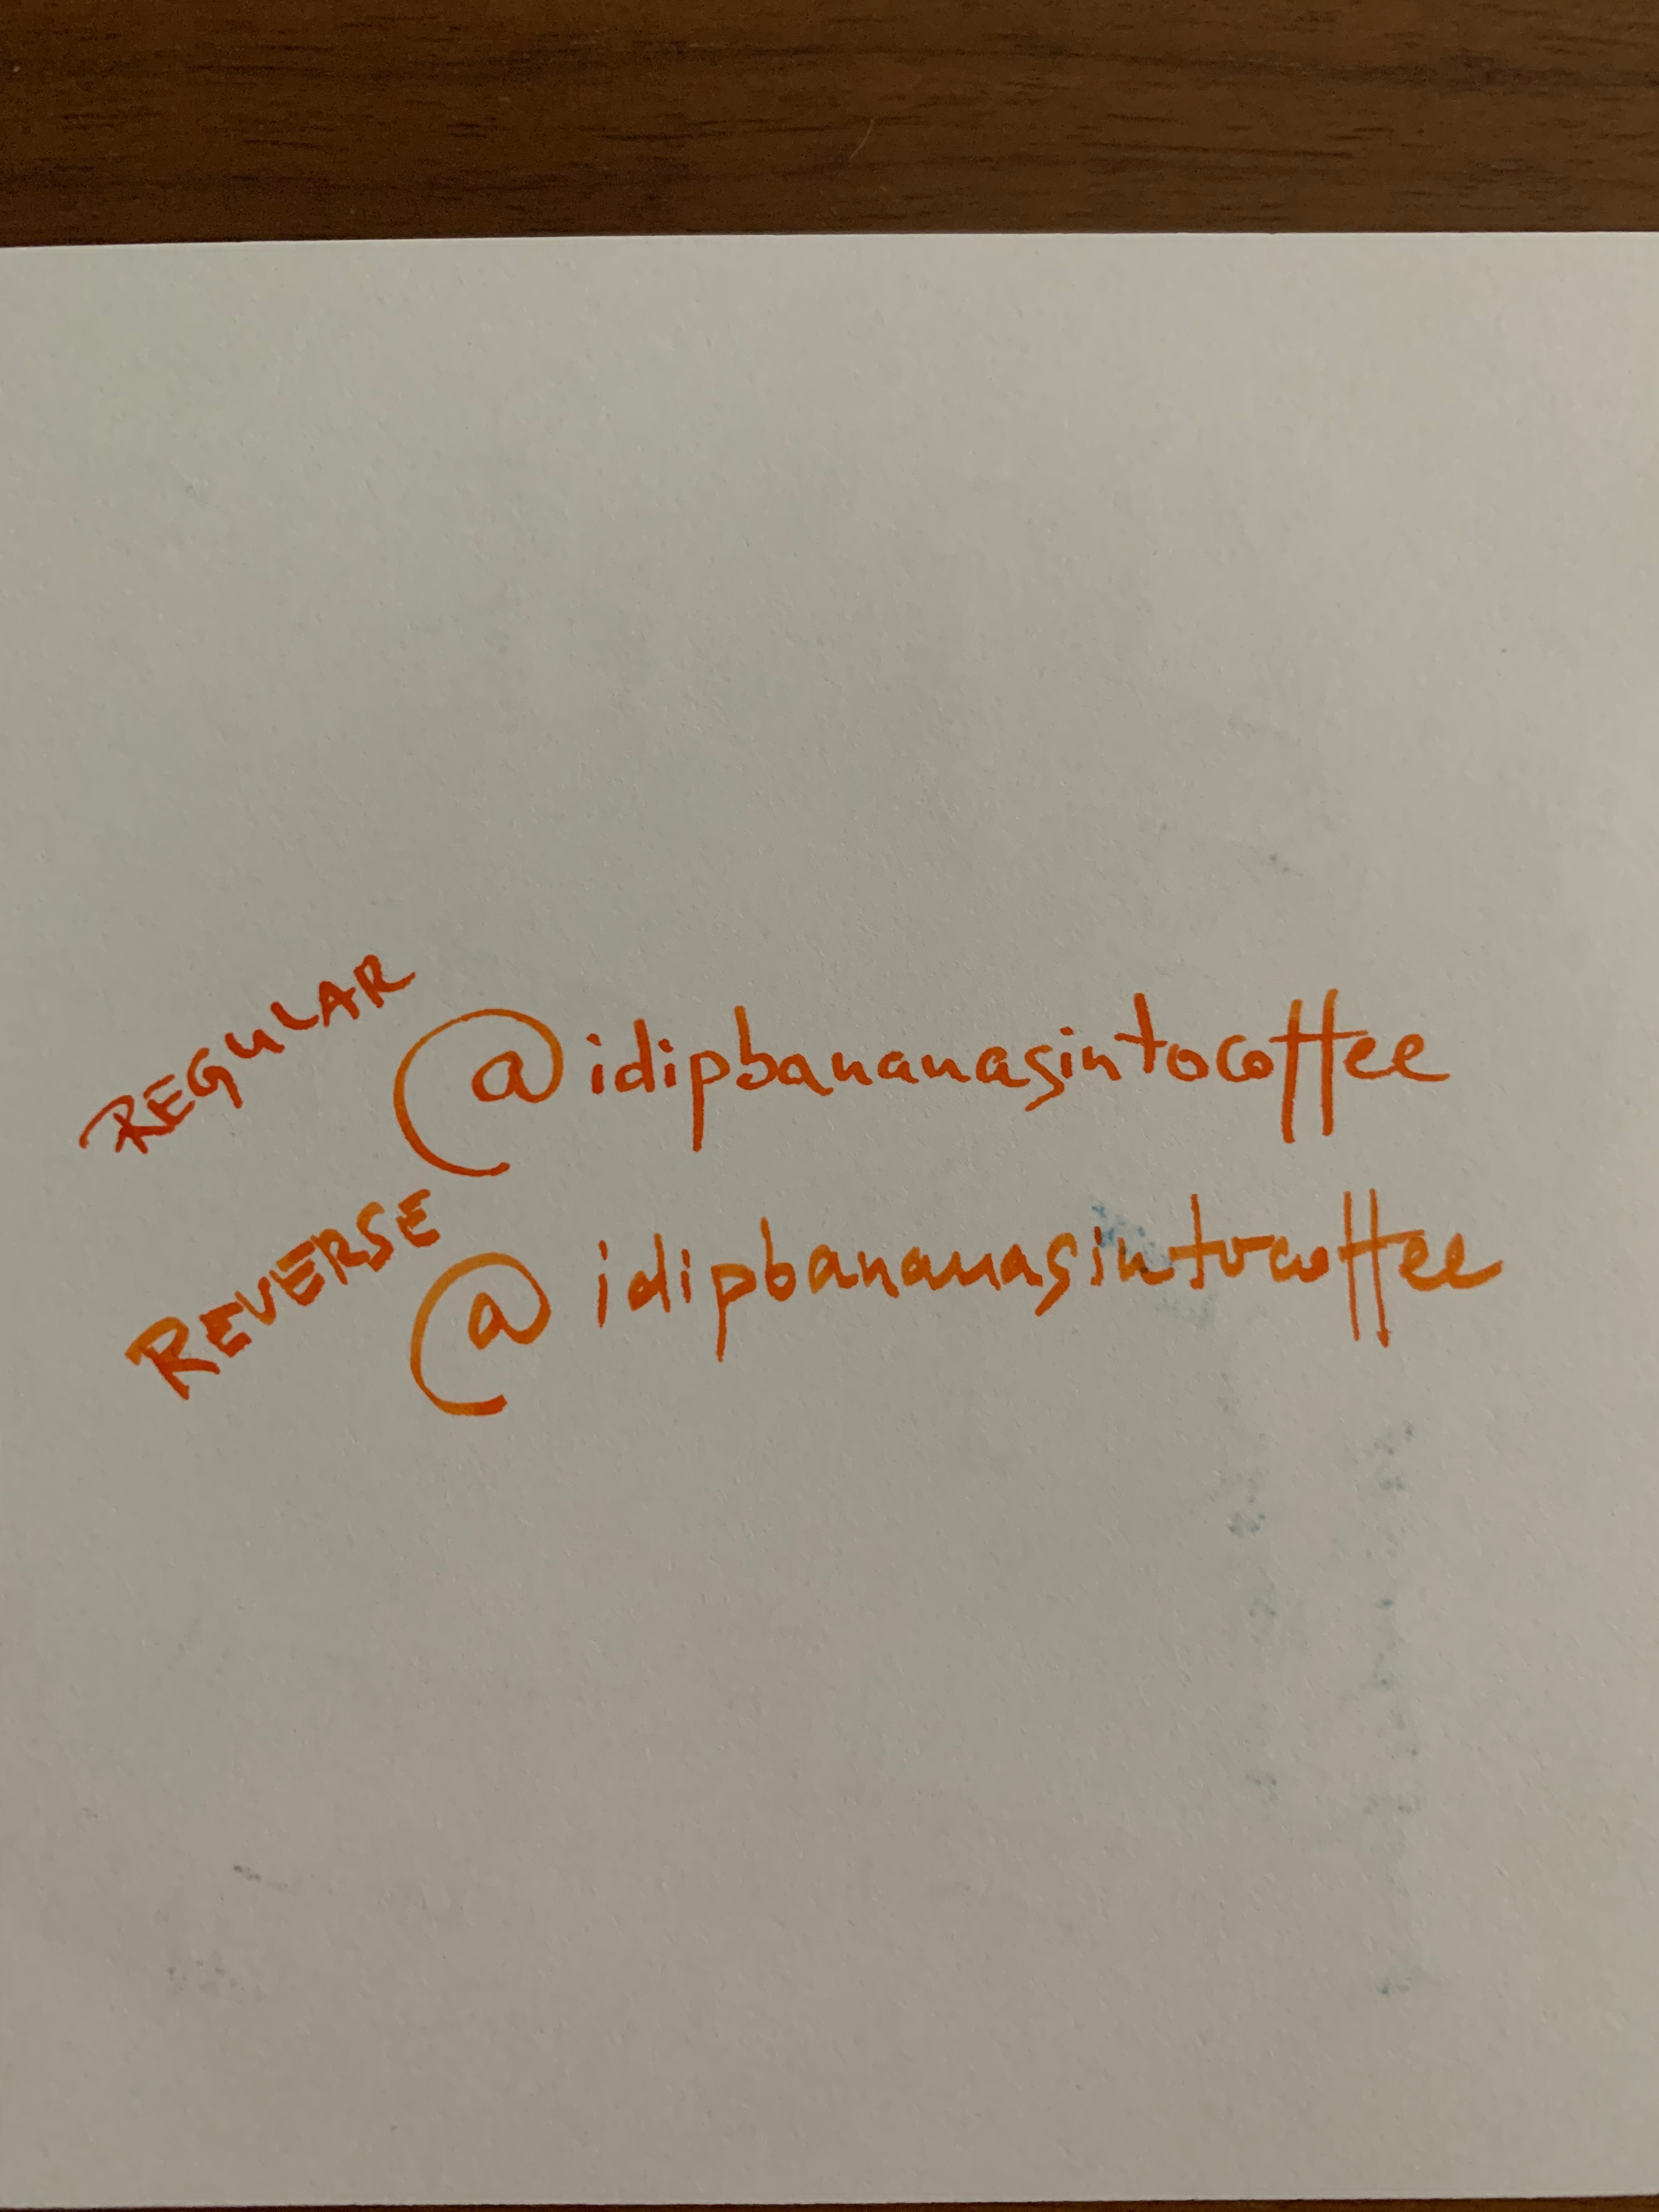 REGULAR @idipbananasintocoffee
REVERSE @ idipbananasintocoffee